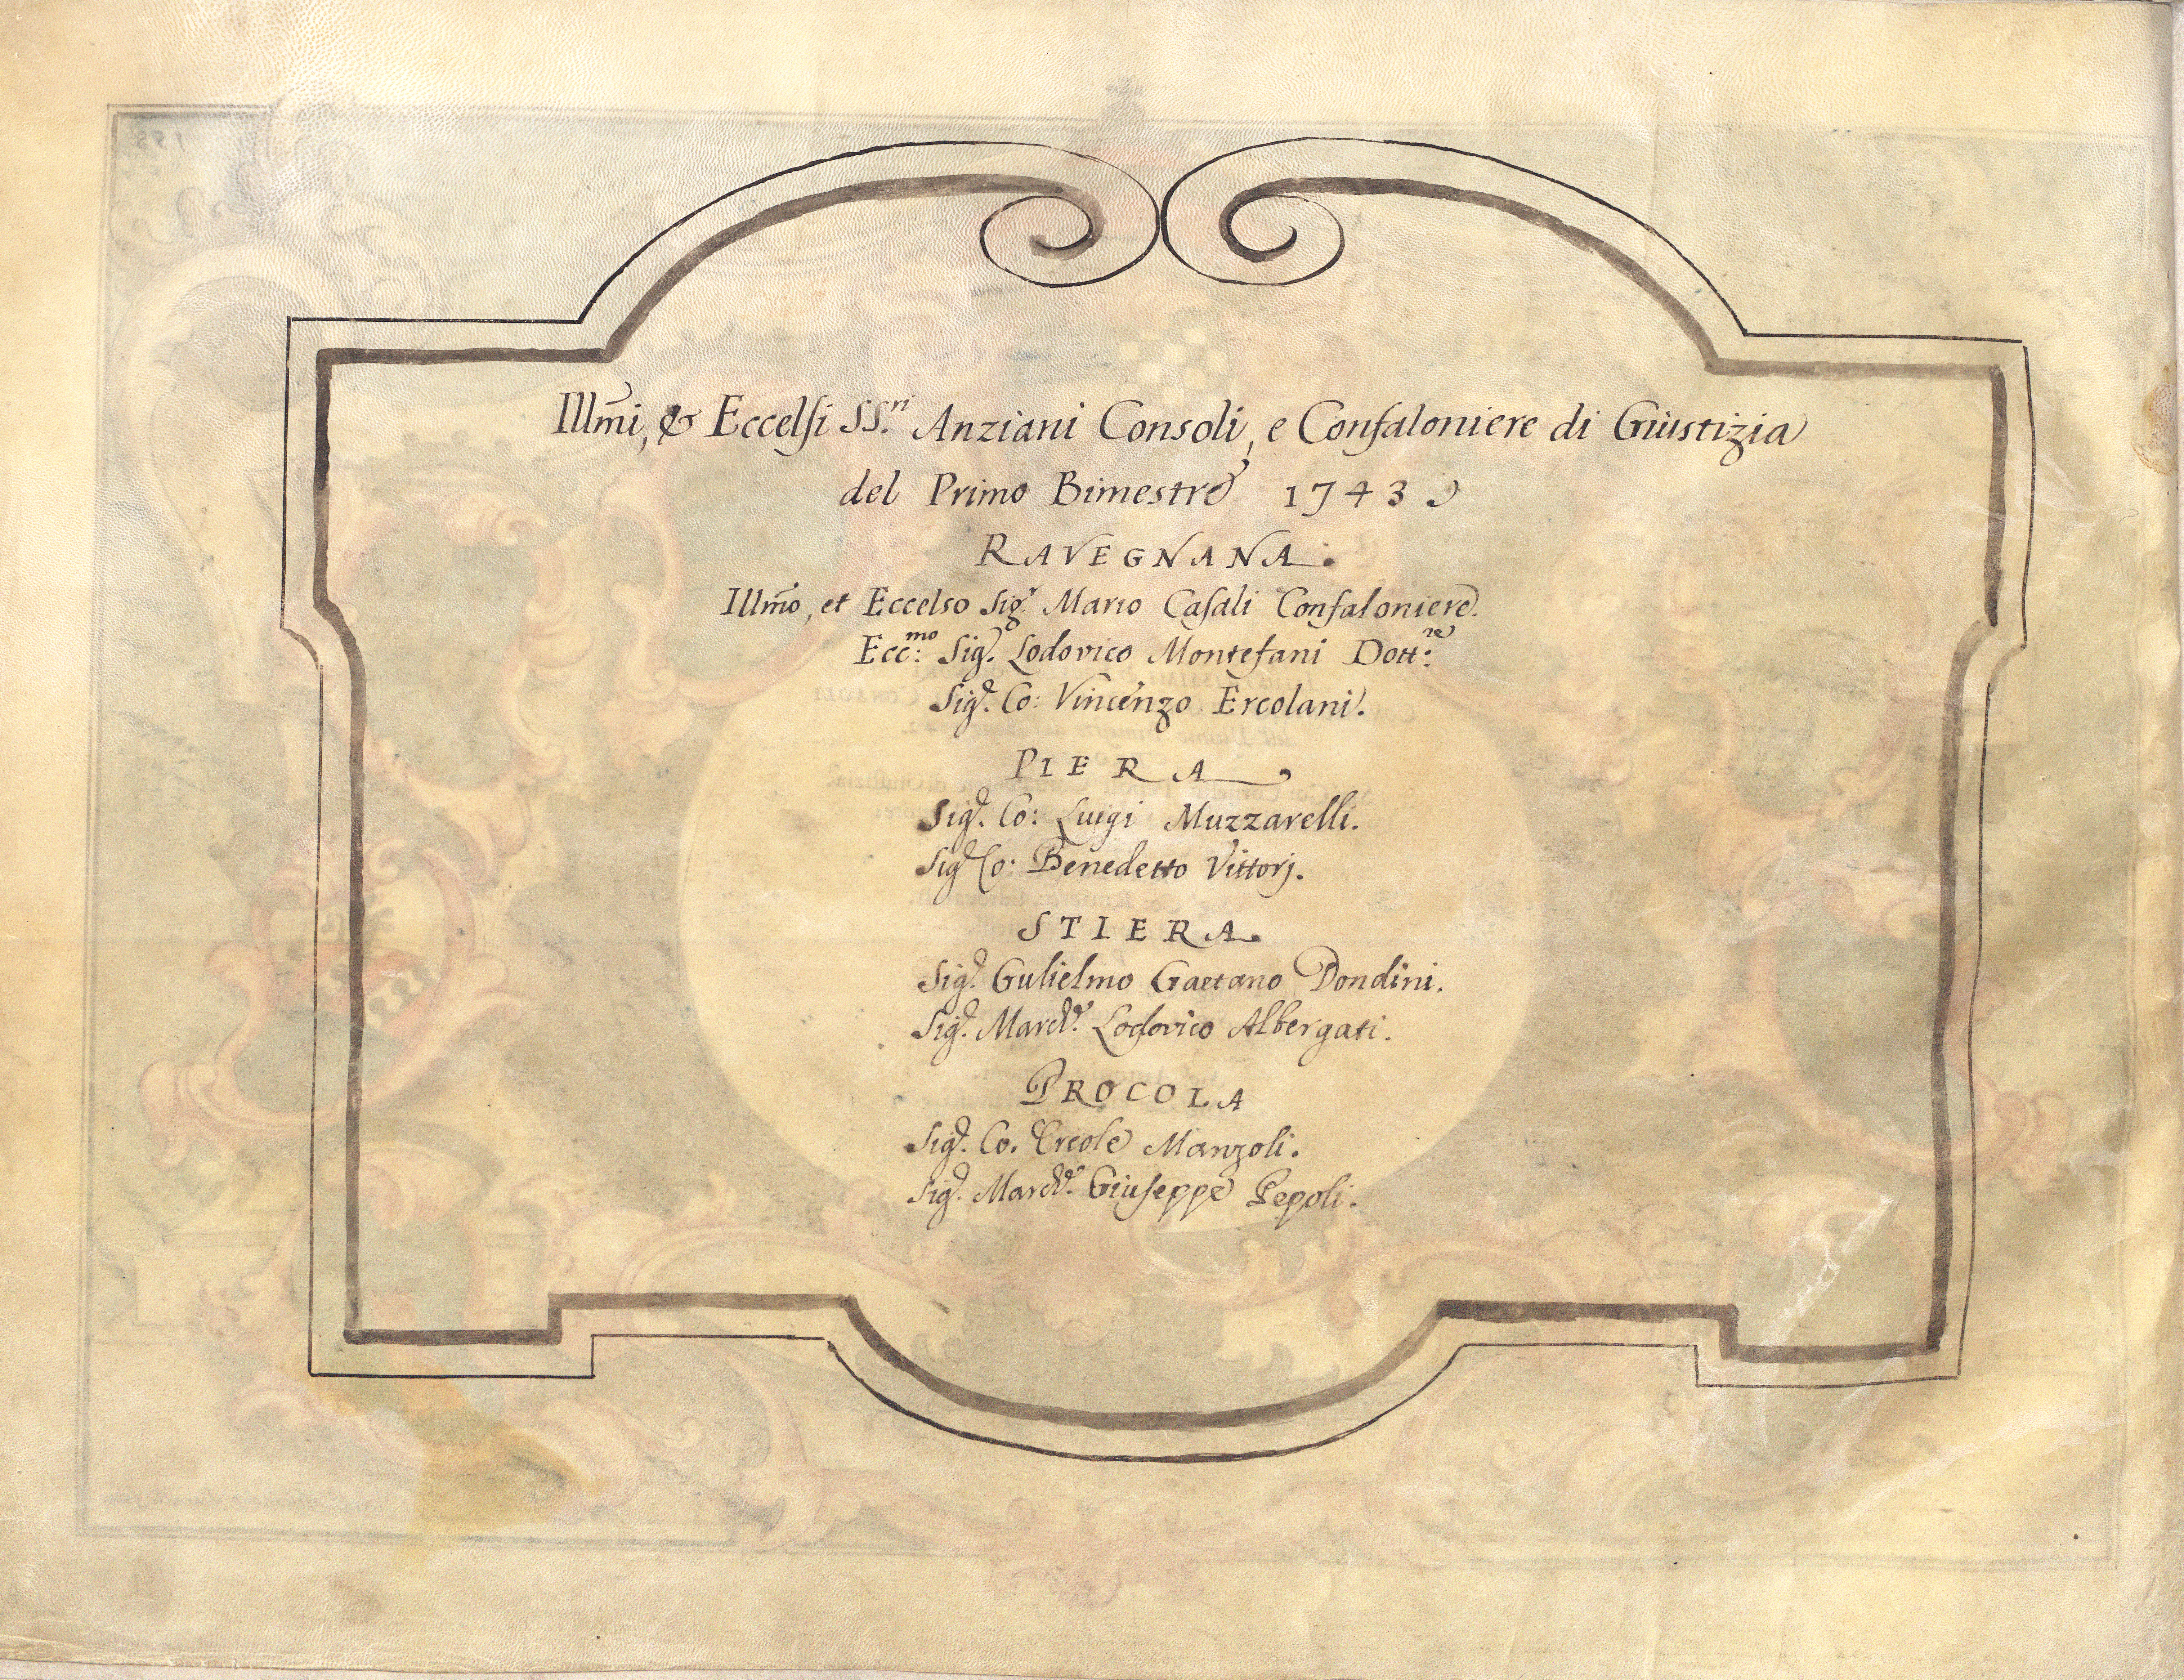 Illm̃i, & Eccelsi SS.ri Anziani Consoli, e Confaloniere di Giustizia
del Primo Bimestre 1743
RAVEGNANA.
Illm̃o, et Eccelso Sig.r Mario Casali Confaloniere.
Ecc:mo Sig.r Lodovico Montefani Dott:re
Sig.r Co: Vincenzo Ercolani.
PIERA
Sig.r Co: Luigi Muzzarelli.
Sig.r Co: Benedetto Vittorj.
STIERA.
Sig.r Gulielmo Gaetano Dondini.
Sig.r March.e Lodovico Albergati.
PROCOLA
Sig.r Co. Ercole Manzoli.
Sig.r March.e Giuseppe Pepoli.